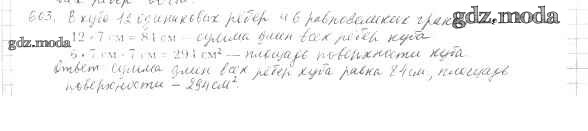 603. В куба 12 одинаковых рёбер и 6 равновеликих гран gdz.moda
gdz.moda 12 · 7 см = 84 см — сумма длин всех рёбер куба
6 · 7 см · 7 см = 294 см² — площадь поверхности куба.
Ответ сумма длин всех рёбер куба равна 84 см, площадь
поверхности — 294 см².